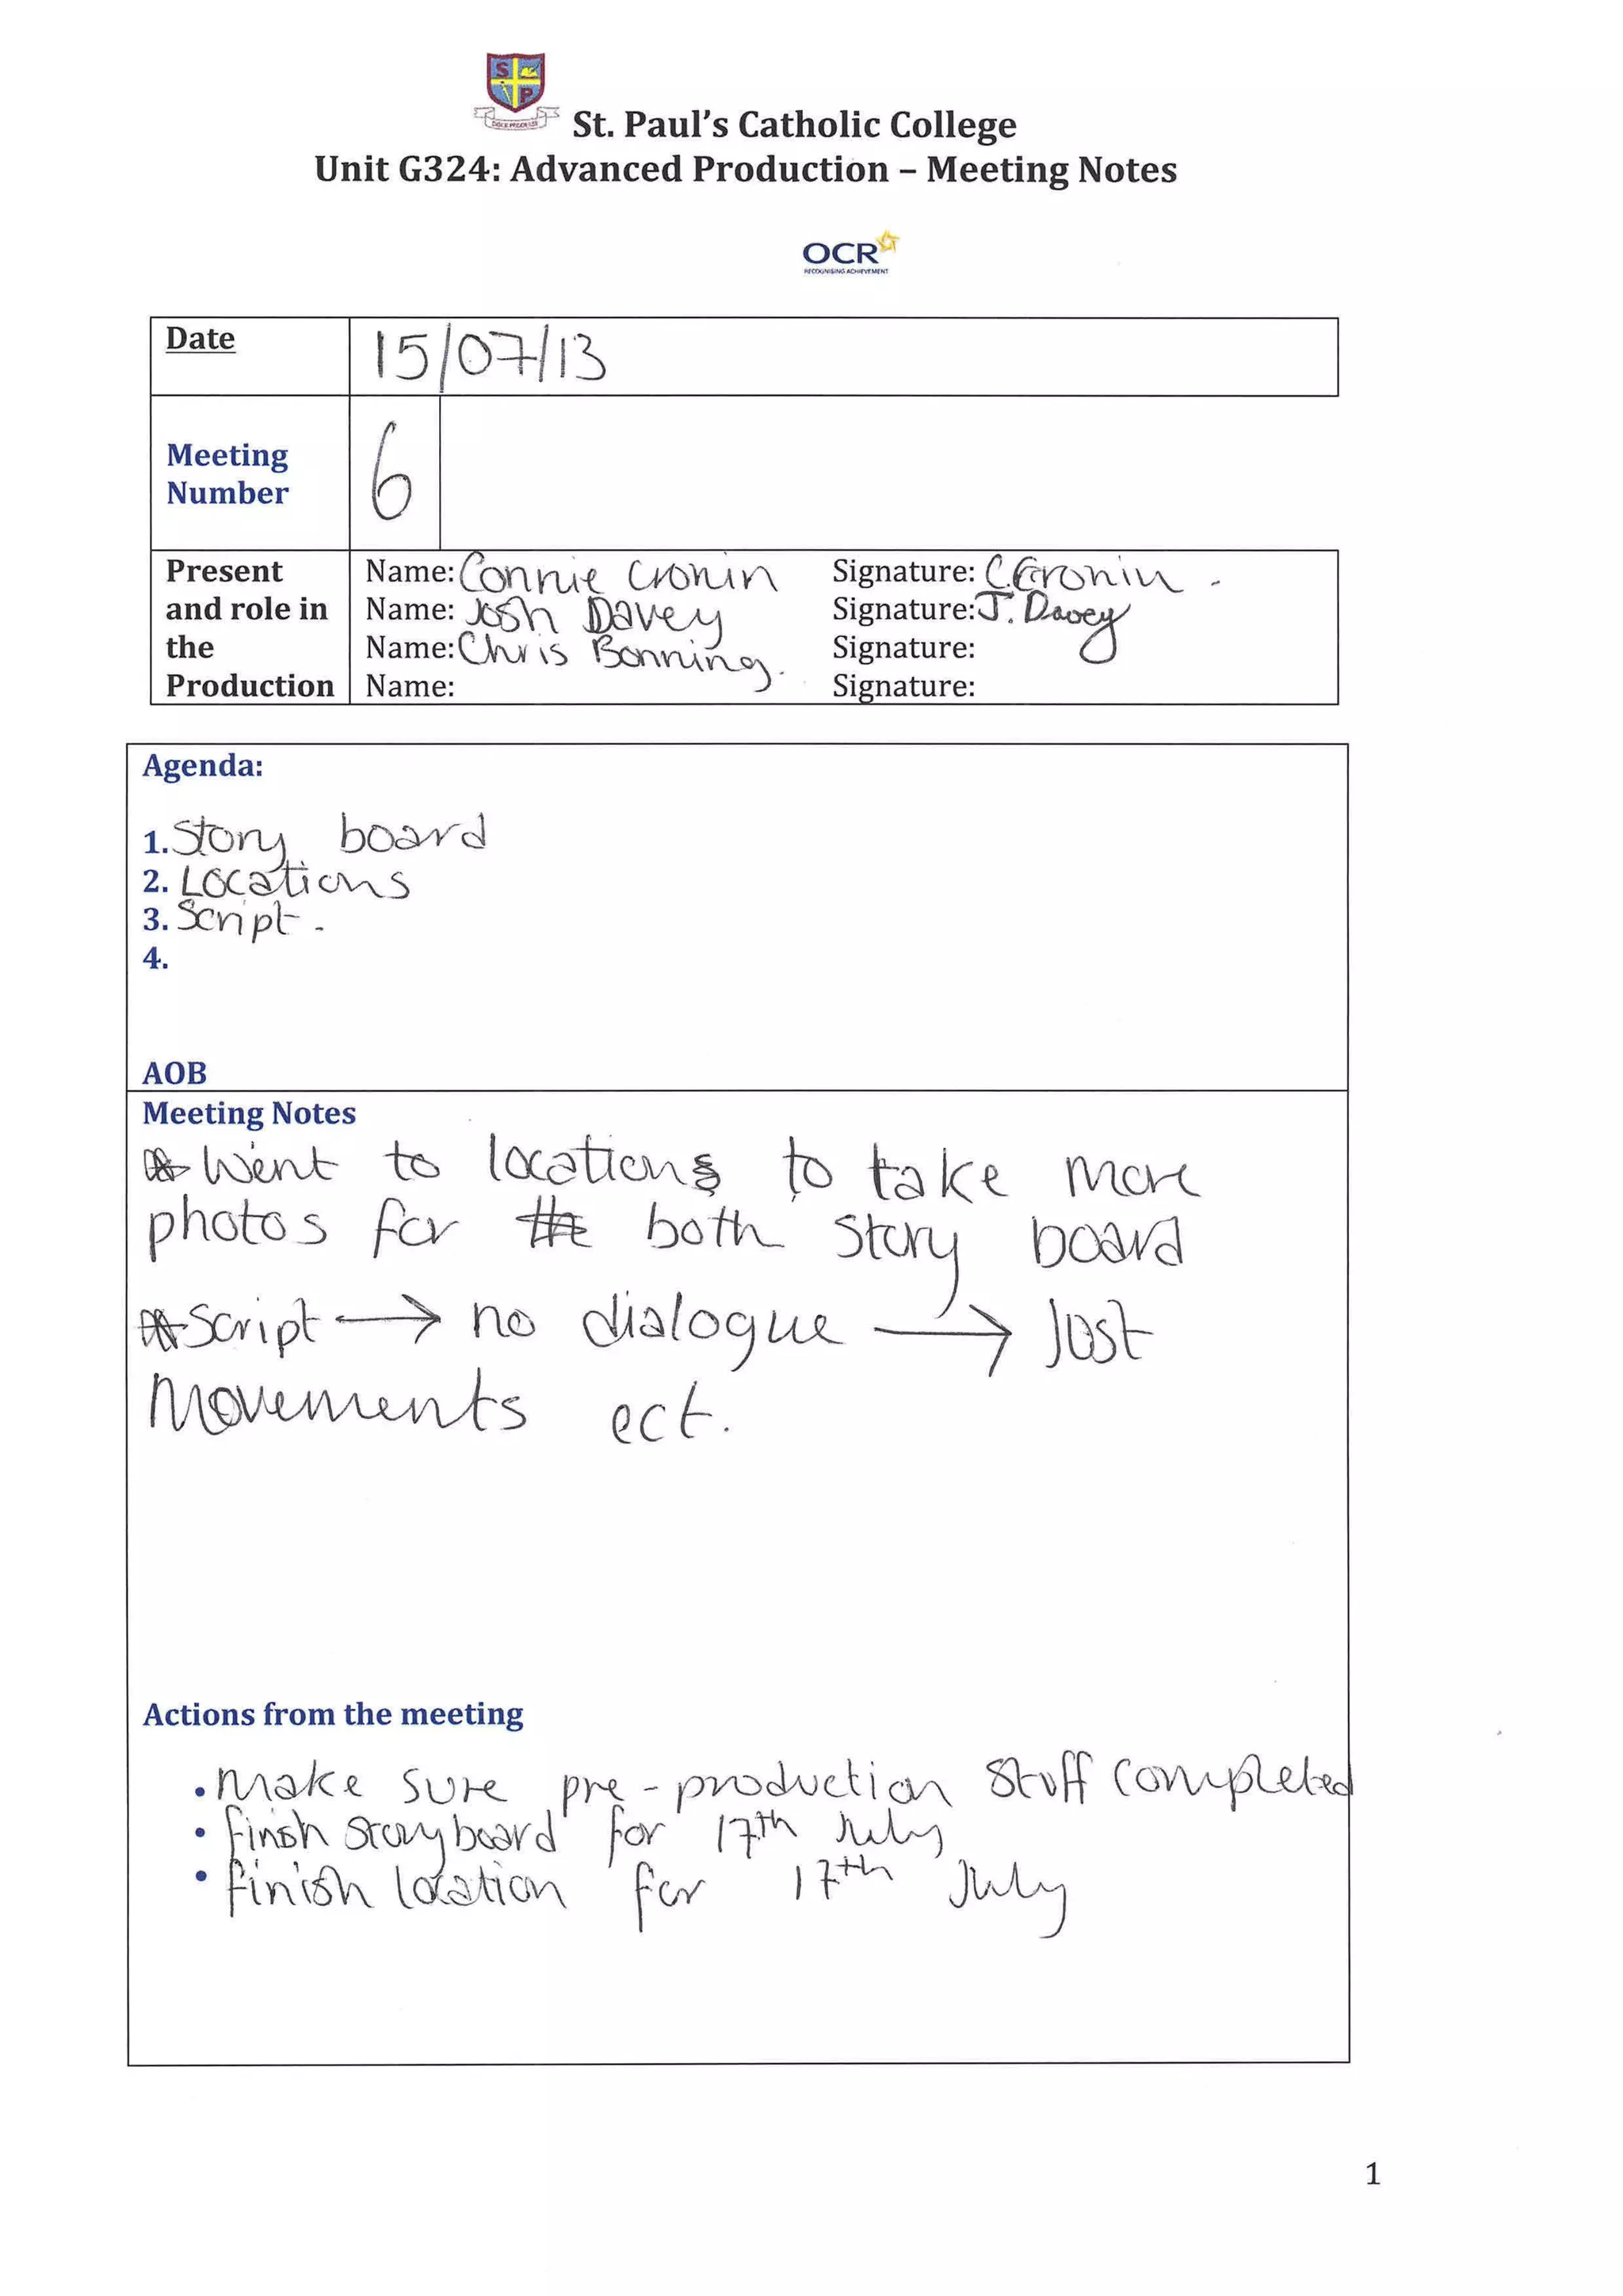 S P
St. Paul's Catholic College
Unit G324: Advanced Production – Meeting Notes
OCR
RECOGNISING ACHIEVEMENT
Date 15/07/13
Meeting
Number 6
Present
and role in
the
Production
Name: Connie Cronin Signature: C.Cronin.
Name: Josh Davey Signature: J. Davey
Name: Chris Bonning. Signature:
Name: Signature:
Agenda:
1. Story board
2. Locations
3. Script.
4.
AOB
Meeting Notes
Went to locations to take more
photos for both story board
Script → no dialogue → Just
Movements ect.
Actions from the meeting
• Make sure pre-production stuff completed
• Finish Storyboard for 17th July
• Finish location for 17th July
1